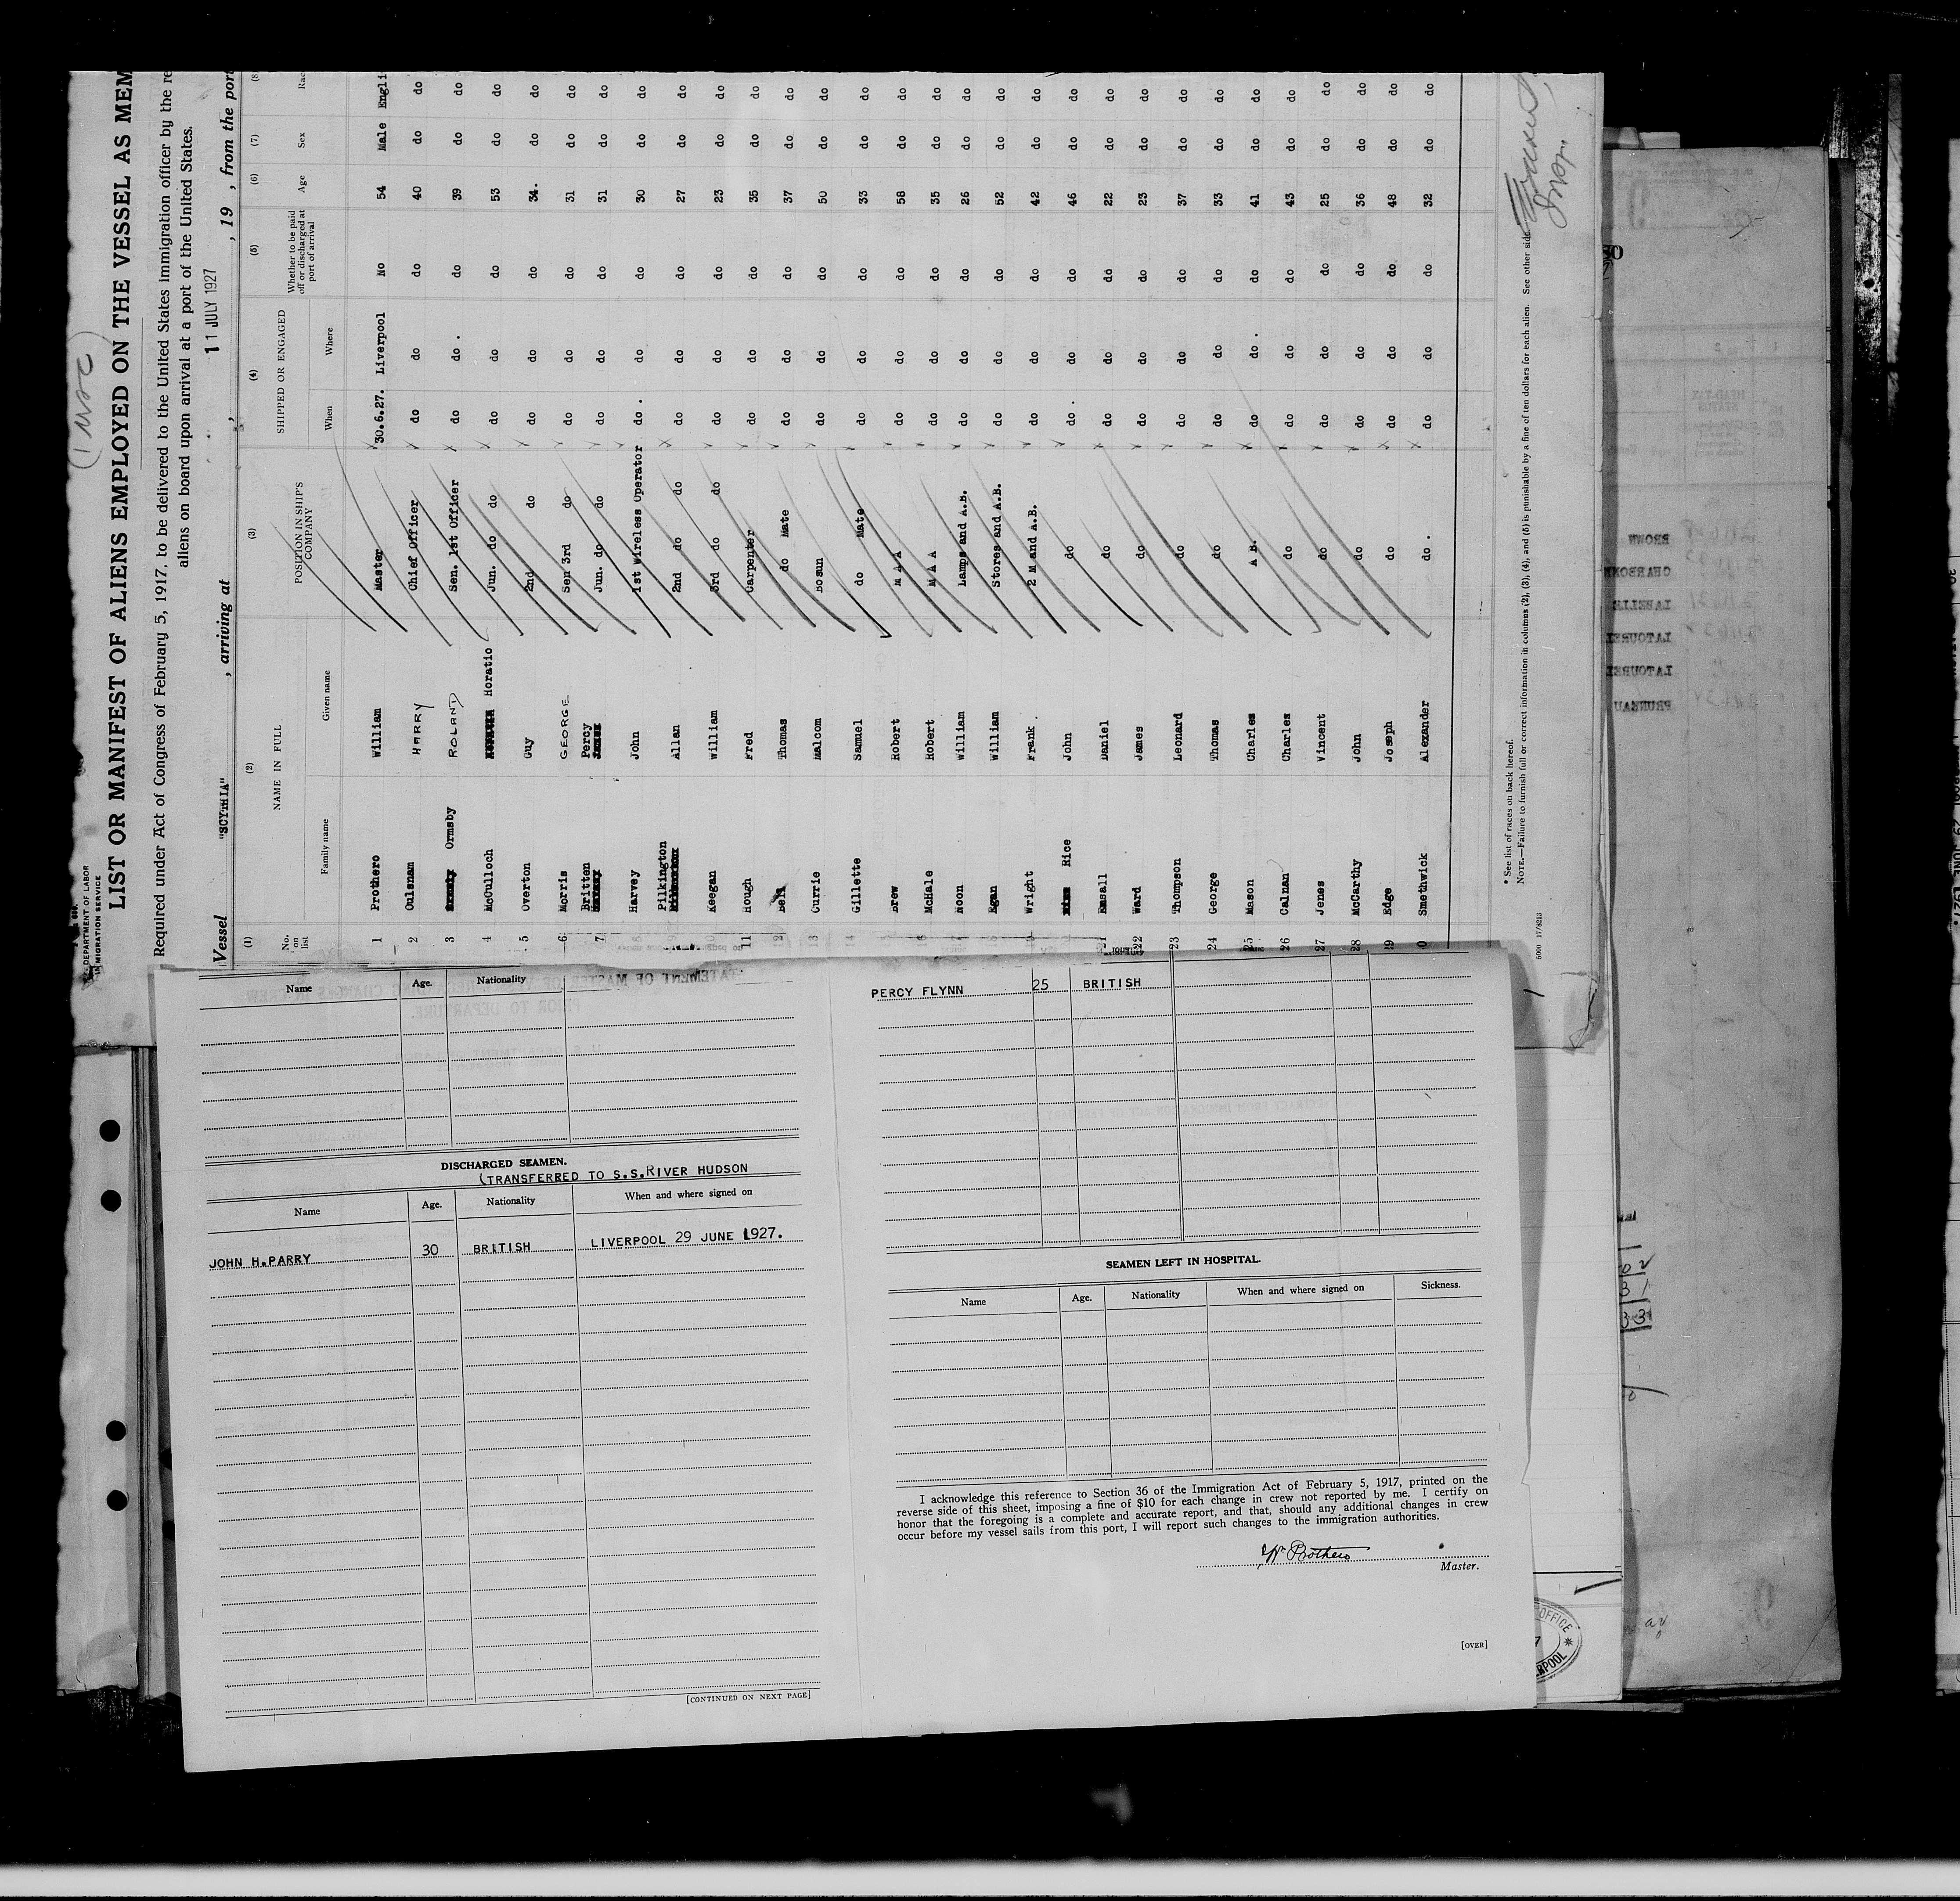 U.S. DEPARTMENT OF LABOR
IMMIGRATION SERVICE
LIST OR MANIFEST OF ALIENS EMPLOYED ON THE VESSEL AS MEM
Required under Act of Congress of February 5, 1917, to be delivered to the United States immigration officer by the re
aliens on board upon arrival at a port of the United States.
11 JULY 1927
Vessel "SCYTHIA" , arriving at , , 19 , from the port
(1) (2) (3) (4) (5) (6) (7) (8)
No. on list NAME IN FULL POSITION IN SHIP'S COMPANY SHIPPED OR ENGAGED Whether to be paid off or discharged at port of arrival Age Sex Rac
Family name Given name When Where
1 Prothero William Master 30.6.27. Liverpool No 54 Male Engli
2 Oulsnam HARRY Chief Officer do do do 40 do do
3 Ormsby ROLAND Sen. 1st Officer do do . do 39 do do
4 McCulloch Horatio Jun. do do do do do 53 do do
5 Overton Guy 2nd do do do do 34. do do
6 Morris GEORGE Sen 3rd do do do do 31 do do
7 Britten Percy Jun. do do do do do 31 do do
Harvey John 1st Wireless Operator do . do do 30 do do
Pilkington Allan 2nd do do do do do 27 do do
Keegan William 3rd do do do do do 23 do do
11 Hough Fred Carpenter do do do 35 do do
2 Bell Thomas do Mate do do do 37 do do
3 Currie Malcom Bosun do do do 50 do do
Gillette Samuel do Mate do do do 33 do do
Drew Robert M A A do do do 58 do do
McHale Robert M A A do do do 35 do do
Noon William Lamps and A.B. do do do 26 do do
Egan William Stores and A.B. do do do 52 do do
Wright Frank . 2 M and A.B. do do do 42 do do
Rice John do do . do do 46 do do
21 Emsall Daniel do do do do 22 do do
22 Ward James do do do do 23 do do
23 Thompson Leonard do do do do 37 do do
24 George Thomas do do do do 33 do do
25 Mason Charles A B. do do . do 41 do do
26 Calnan Charles do do do do 43 do do
27 Jenes Vincent do do do do 25 do do
28 McCarthy John do do do do 36 do do
29 Edge Joseph do do do do 48 do do
0 Smethwick Alexander do . do do do 32 do do
* See list of races on back hereof.
NOTE.—Failure to furnish full or correct information in columns (2), (3), (4), and (5) is punishable by a fine of ten dollars for each alien. See other side
Name Age. Nationality
DISCHARGED SEAMEN.
(TRANSFERRED TO S.S.RIVER HUDSON
Name Age. Nationality When and where signed on
JOHN H.PARRY 30 BRITISH LIVERPOOL 29 JUNE 1927.
[CONTINUED ON NEXT PAGE]
PERCY FLYNN 25 BRITISH
SEAMEN LEFT IN HOSPITAL.
Name Age. Nationality When and where signed on Sickness.
I acknowledge this reference to Section 36 of the Immigration Act of February 5, 1917, printed on the
reverse side of this sheet, imposing a fine of $10 for each change in crew not reported by me. I certify on
honor that the foregoing is a complete and accurate report, and that, should any additional changes in crew
occur before my vessel sails from this port, I will report such changes to the immigration authorities.
Wm Prothero
Master.
[OVER]
OFFICE
BROWN
LABELLE
PRUNEAU